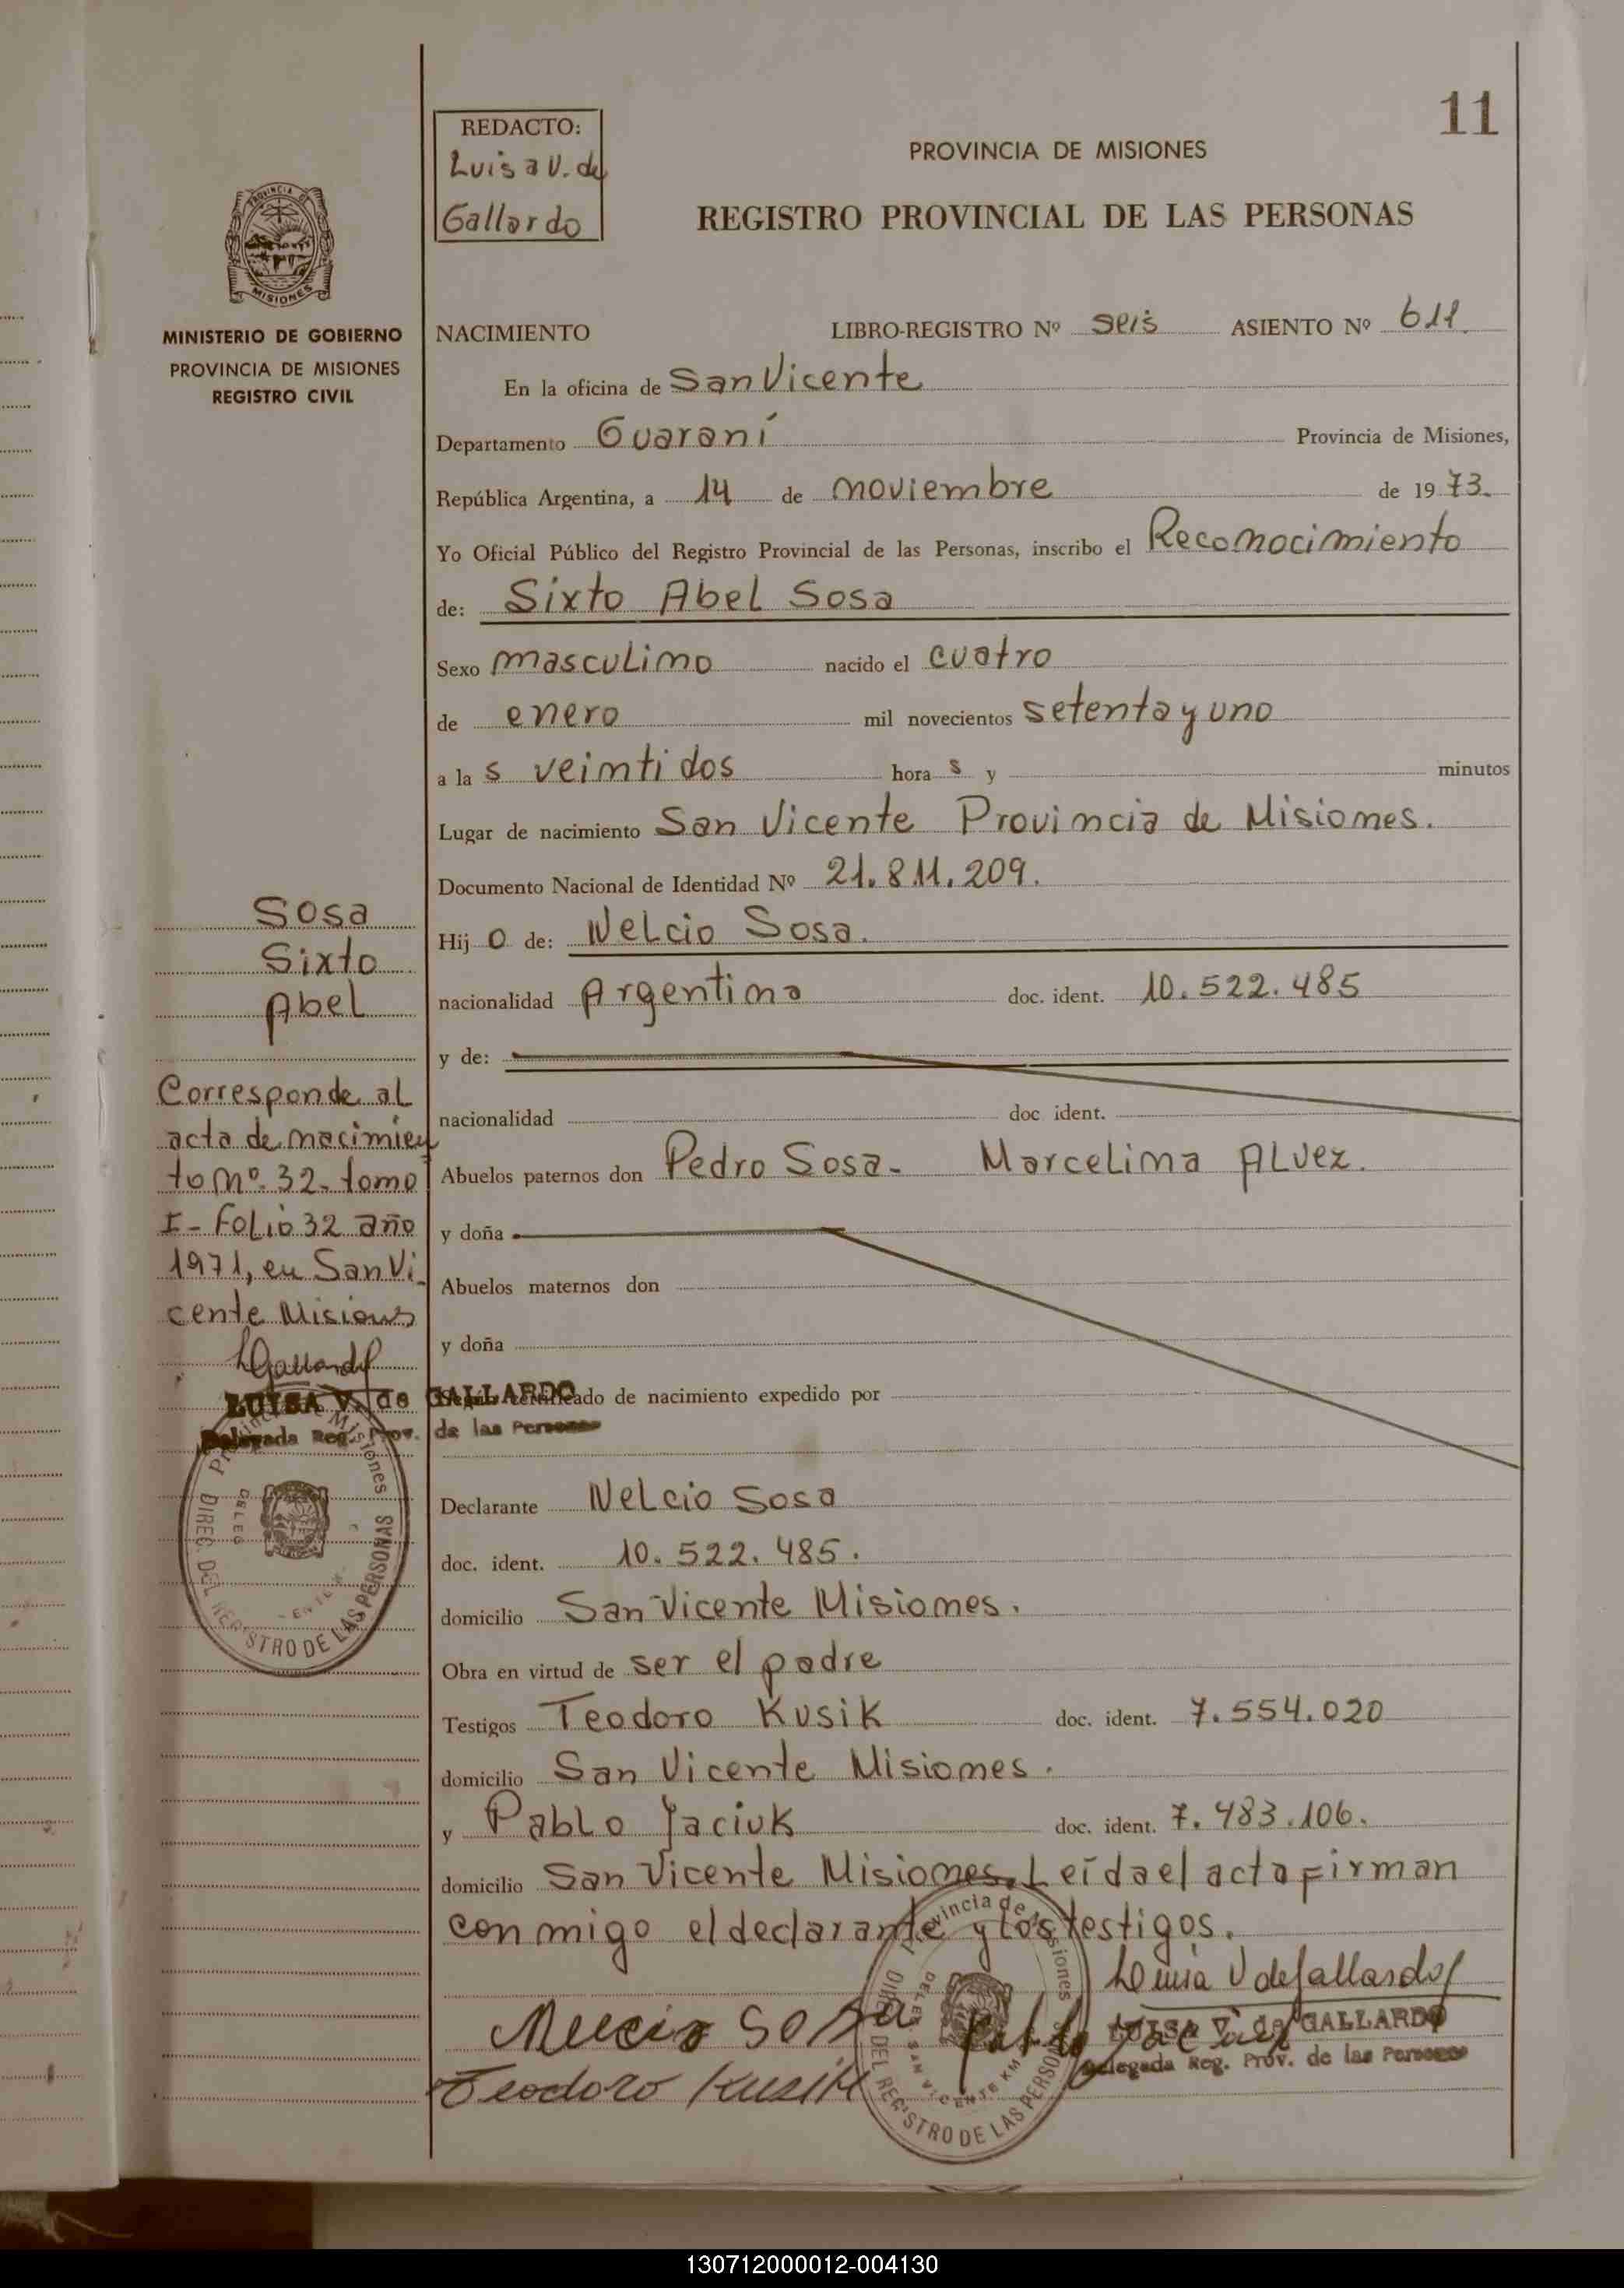 11
REDACTO:
Luisa V. de
Gallardo
PROVINCIA DE MISIONES
REGISTRO PROVINCIAL DE LAS PERSONAS
MINISTERIO DE GOBIERNO
PROVINCIA DE MISIONES
REGISTRO CIVIL
NACIMIENTO LIBRO-REGISTRO Nº seis ASIENTO Nº 611.
En la oficina de San Vicente
Departamento Guaraní Provincia de Misiones,
República Argentina, a 14 de noviembre de 1973.
Yo Oficial Público del Registro Provincial de las Personas, inscribo el Reconocimiento
de: Sixto Abel Sosa
Sexo masculino nacido el cuatro
de enero mil novecientos setenta y uno
a las veintidos horas y minutos
Lugar de nacimiento San Vicente Provincia de Misiones.
Documento Nacional de Identidad Nº 21.811.209.
Hijo de: Nelcio Sosa.
nacionalidad Argentina doc. ident. 10.522.485
y de:
nacionalidad doc ident.
Abuelos paternos don Pedro Sosa- Marcelina Alvez.
y doña
Abuelos maternos don
y doña
Según certificado de nacimiento expedido por
Declarante Nelcio Sosa
doc. ident. 10.522.485.
domicilio San Vicente Misiones.
Obra en virtud de ser el padre
Testigos Teodoro Kusik doc. ident. 7.554.020
domicilio San Vicente Misiones.
y Pablo Yaciuk doc. ident. 7.483.106.
domicilio San Vicente Misiones. Leída el acta firman
conmigo el declarante y los testigos.
Luisa V de Gallardo
LUISA V. de GALLARDO
Delegada Reg. Prov. de las Personas
Sosa
Teodoro Kusik
Provincia de Misiones
DIREC. DEL REGISTRO DE LAS PERSONAS
Sosa
Sixto
Abel
Corresponde al
acta de nacimien
to Nº 32- tomo
I- Folio 32 año
1971, en San Vi-
cente Misiones
LGallardo
LUISA V. de GALLARDO
Delegada Reg. Prov. de las Personas
Provincia de Misiones
DIREC. DEL REGISTRO DE LAS PERSONAS
PROVINCIA
MISIONES
130712000012-004130